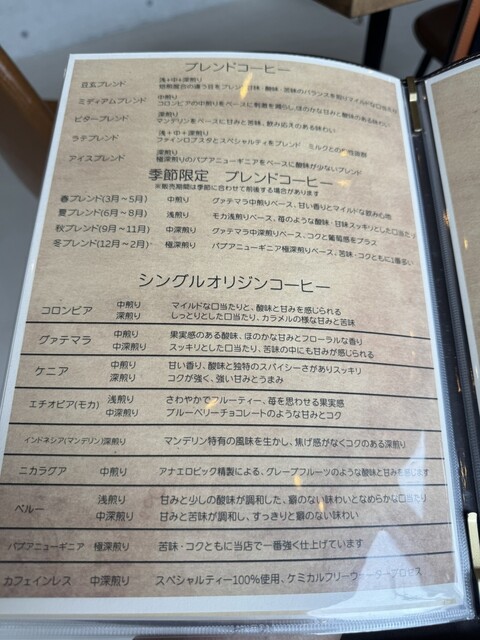 ブレンドコーヒー
日玄ブレンド 浅+中+深煎り
焙煎度合の違う豆をブレンド 甘味・酸味・苦味のバランスを取りマイルドな口当たり
ミディアムブレンド 中煎り
コロンビアの中煎りをベースに刺激を減らし、ほのかな甘みと酸味のある味わい
ビターブレンド 深煎り
マンデリンをベースに甘みと苦味、飲み応えのある味わい
ラテブレンド 浅+中+深煎り
ファインロブスタとスペシャルティをブレンド ミルクとの
アイスブレンド 深煎り
極深煎りのパプアニューギニアをベースに酸味が少ないブレンド
季節限定 ブレンドコーヒー
※販売期間は季節に合わせて前後する場合があります
春ブレンド(3月~5月) 中煎り グァテマラ中煎りベース、甘い香りとマイルドな飲み心地
夏ブレンド(6月~8月) 浅煎り モカ浅煎りベース、苺のような酸味・甘味スッキリとした口当たり
秋ブレンド(9月~11月) 中深煎り グァテマラ中深煎りベース、コクと葡萄感をプラス
冬ブレンド(12月~2月) 極深煎り パプアニューギニア極深煎りベース、苦味・コクともに1番多い
シングルオリジンコーヒー
コロンビア 中煎り マイルドな口当たりと、酸味と甘みを感じられる
深煎り しっとりとした口当たり、カラメルの様な甘みと苦味
グァテマラ 中煎り 果実感のある酸味、ほのかな甘みとフローラルな香り
中深煎り スッキリとした口当たり、苦味の中にも甘みが感じられる
ケニア 中煎り 甘い香り、酸味と独特のスパイシーさがありスッキリ
深煎り コクが強く、強い甘みとうまみ
エチオピア(モカ) 浅煎り さわやかでフルーティー、苺を思わせる果実感
中深煎り ブルーベリーチョコレートのような甘みとコク
インドネシア(マンデリン)深煎り マンデリン特有の風味を生かし、焦げ感がなくコクのある深煎り
ニカラグア 中煎り アナエロビック精製による、グレープフルーツのような酸味と甘みを感じます
ペルー 浅煎り 甘みと少しの酸味が調和した、癖のない味わいとなめらかな口当たり
中深煎り 甘みと苦味が調和し、すっきりと癖のない味わい
パプアニューギニア 極深煎り 苦味・コクともに当店で一番強く仕上げています
カフェインレス 中深煎り スペシャルティー100%使用、ケミカルフリーウォータープロセス